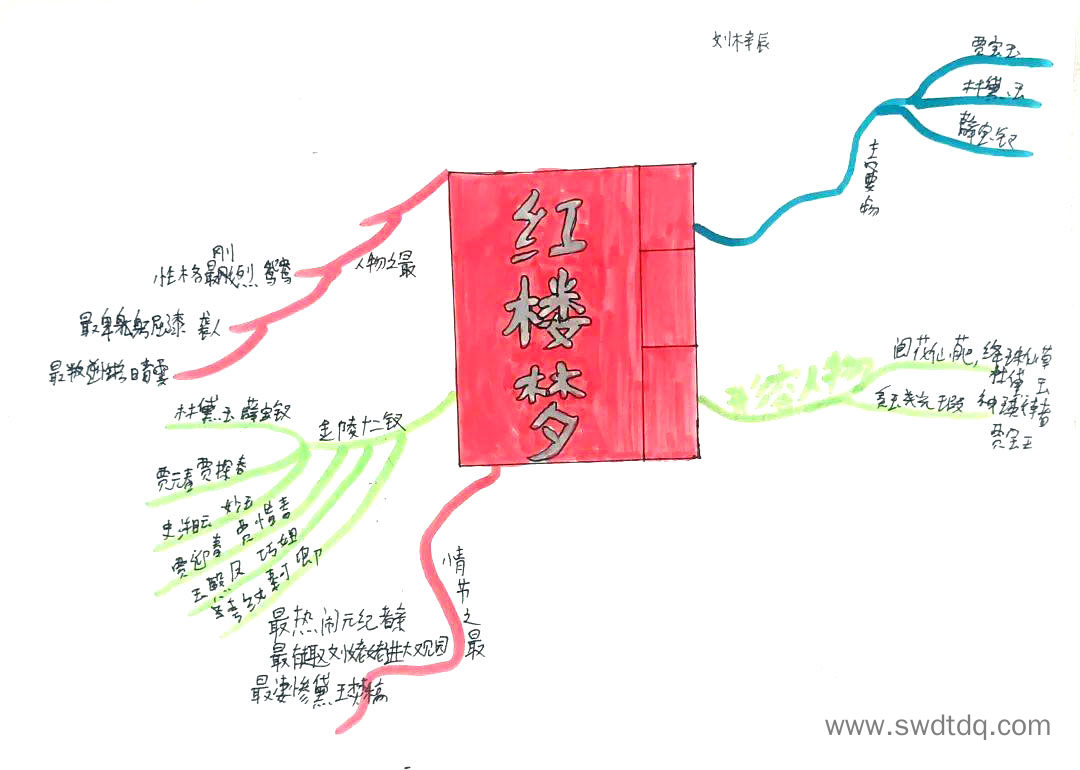 刘梓辰
贾宝玉
林黛玉
薛宝钗
主要人物
红
楼
梦
刚
性格最刚烈 鸳鸯
人物之最
袭人
最 晴雯
林黛玉 薛宝钗
金陵十二钗
贾元春 贾探春
史湘云 妙玉
贾迎春 贾惜春
王熙凤 巧姐
秦可卿
情节之最
最热闹元妃省亲
最能趣刘姥姥进大观园
最凄惨黛玉焚稿
人物
绛珠仙草
林黛玉
神瑛侍者
贾宝玉
www.swdtdq.com